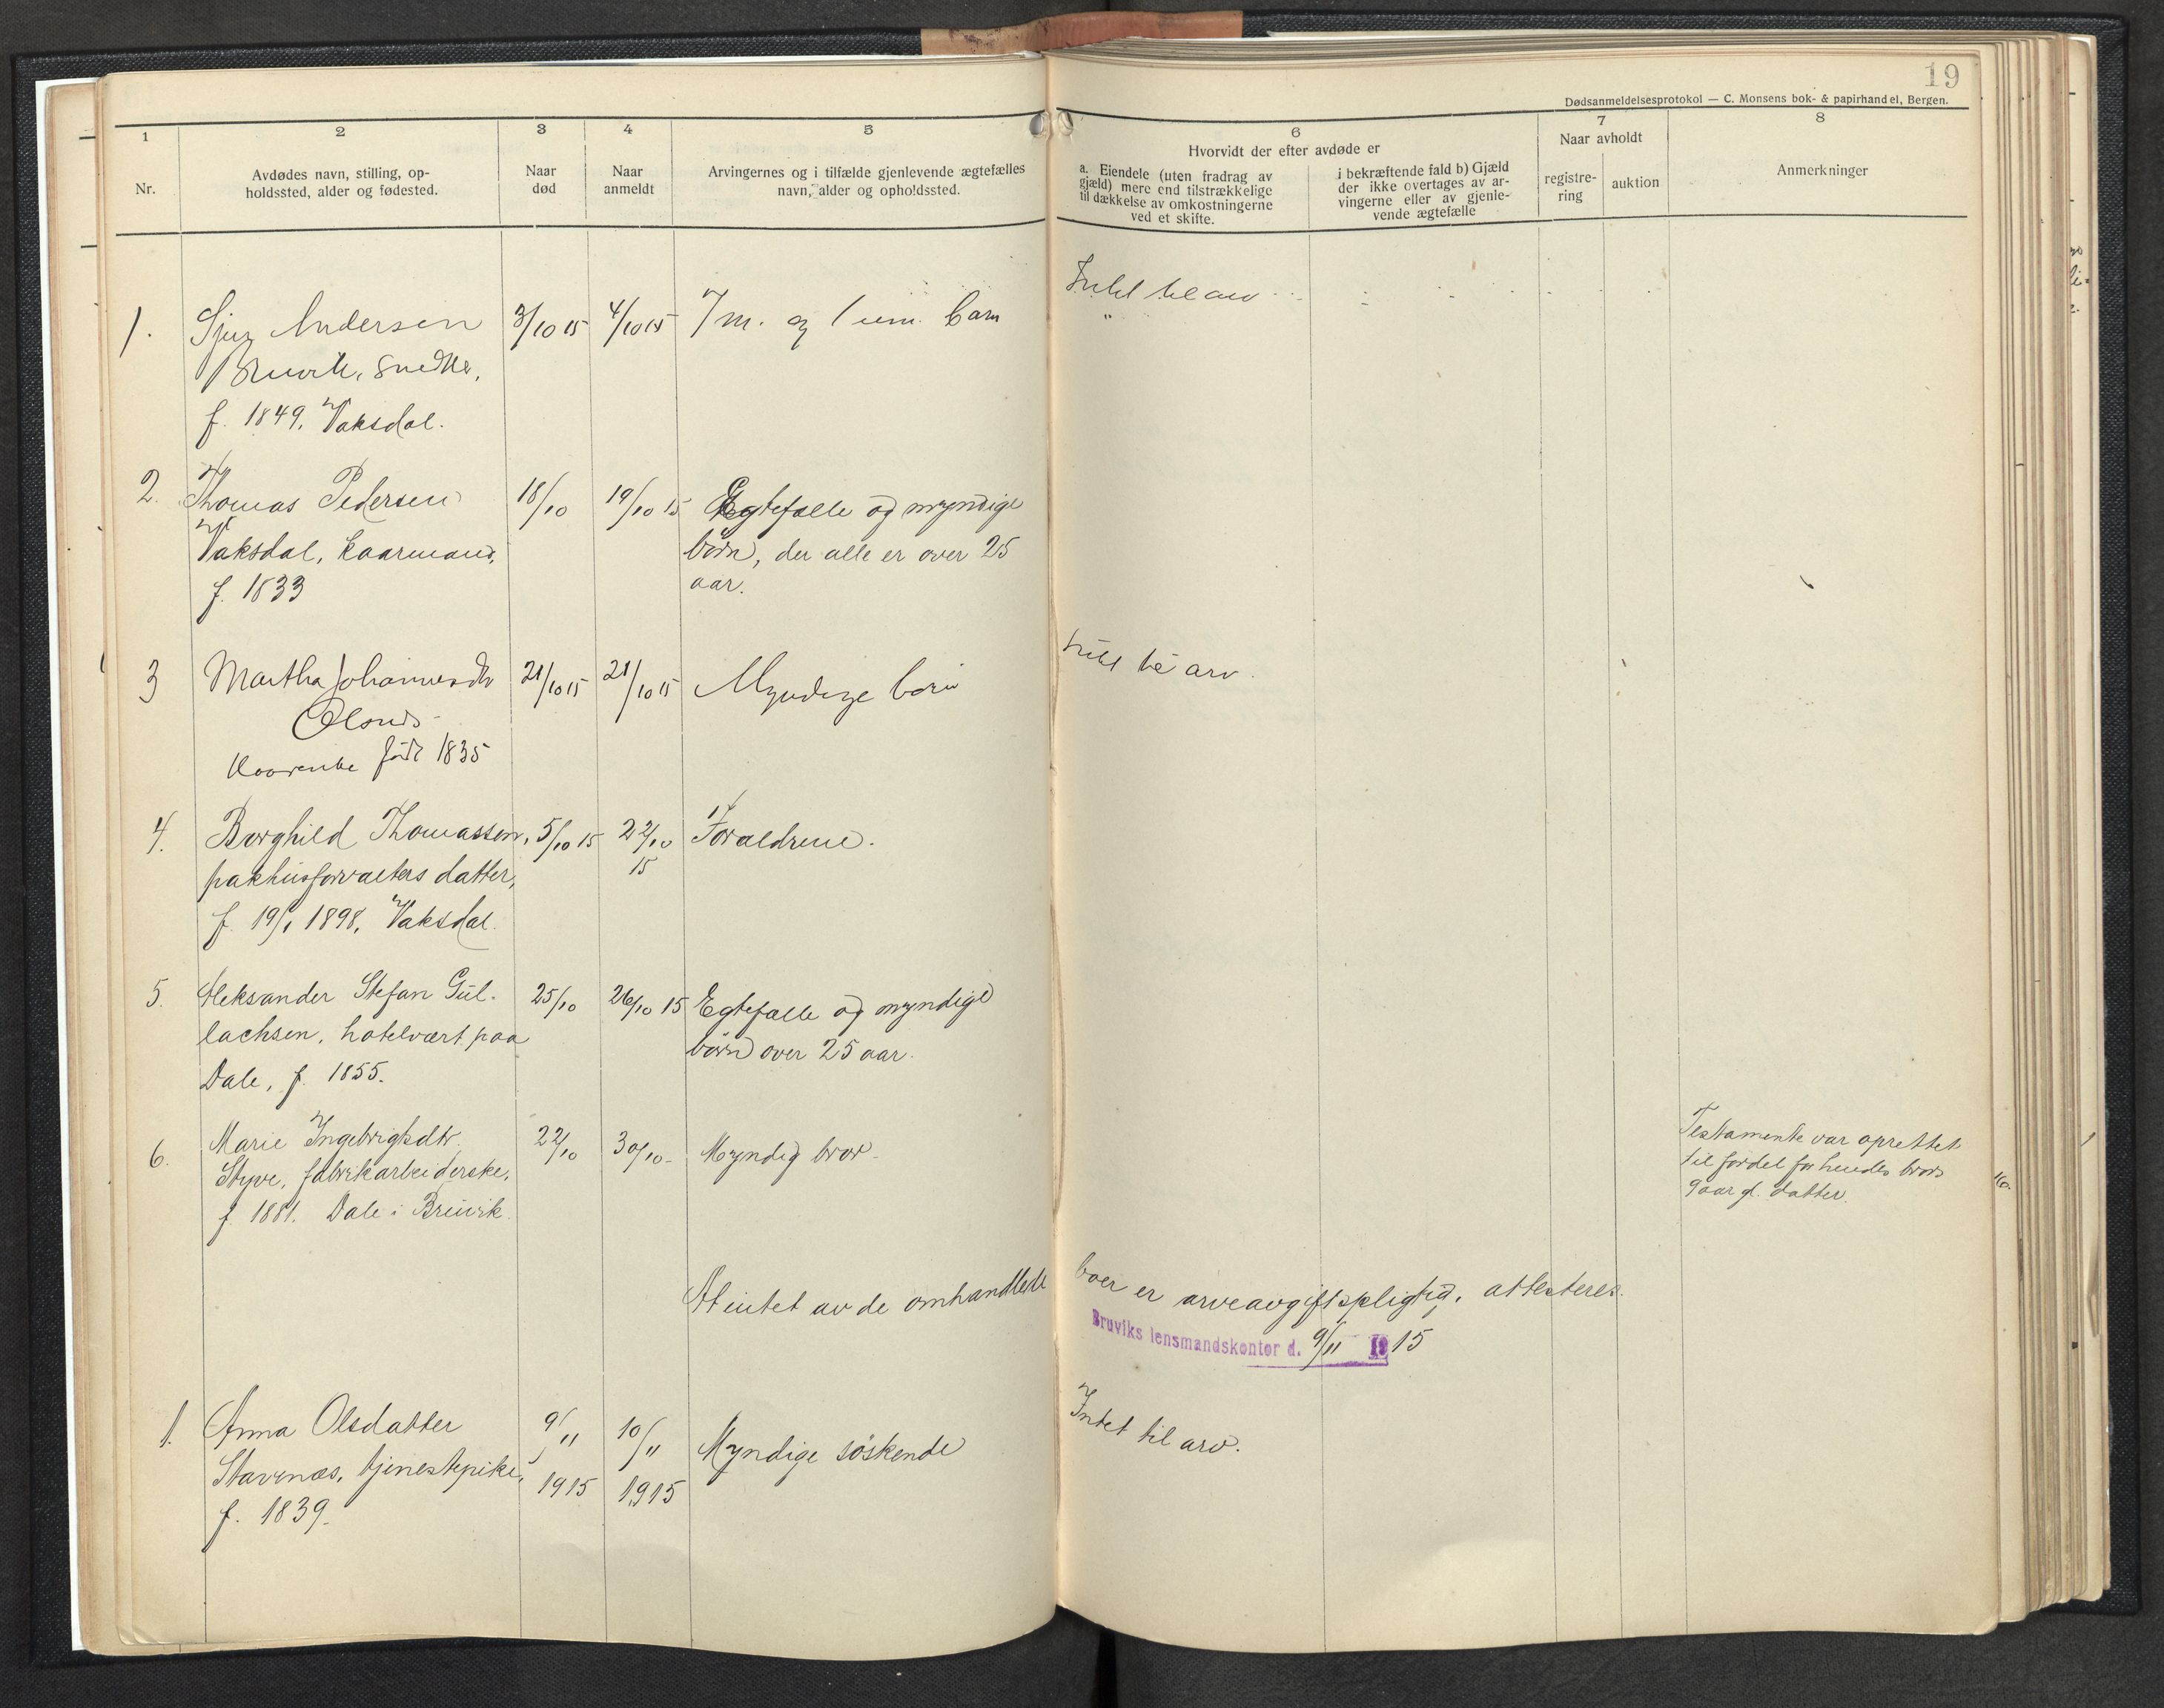 19
Dødsanmeldelsesprotokol — C. Monsens bok- & papirhandel, Bergen.
1
Nr.
2
Avdødes navn, stilling, op-
holdssted, alder og fødested.
3
Naar
død
4
Naar
anmeldt
5
Arvingernes og i tilfælde gjenlevende ægtefælles
navn, alder og opholdssted.
6
Hvorvidt der efter avdøde er
a. Eiendele (uten fradrag av
gjæld) mere end tilstrækkelige
til dækkelse av omkostningerne
ved et skifte.
i bekræftende fald b) Gjæld
der ikke overtages av ar-
vingerne eller av gjenle-
vende ægtefælle
7
Naar avholdt
registre-
ring
auktion
8
Anmerkninger
1. Sjur Andersen 3/10 15 4/10 15 7 m. og 1 um. barn Intet til arv
Bruvik, snedker,
f. 1849. Vaksdal.
2. Thomas Pedersen 18/10 19/10 15 Egtefælle og myndige
Vaksdal, kaarmand, børn, der alle er over 25
f. 1833 aar.
3 Martha Johannesdtr 21/10 15 21/10 15 Myndige børn Intet til arv.
Olsnes
Kaarenke født 1835
4. Borghild Thomassen, 5/10 15 22/10 15 Forældrene.
pakhusforvalters datter,
f. 19/1 1898, Vaksdal.
5. Aleksander Stefan Gul- 25/10 26/10 15 Egtefælle og myndige
lachsen, hotelvært paa børn over 25 aar.
Dale, f. 1855.
6. Marie Ingebrigtsdtr. 22/10 30/10- Myndig bror. Testamente var oprettet
Styve, fabrikarbeiderske, til fordel for hendes brors
f. 1881. Dale i Bruvik. 9 aar gl. datter.
At intet av de omhandlede boer er arveavgiftspligtig, attesteres.
Bruviks lensmandskontor d. 9/11 19 15
1. Anna Olsdatter 9/11 1915 10/11 1915 Myndige søskende Intet til arv.
Stavenæs, tjenestepike,
f. 1839.